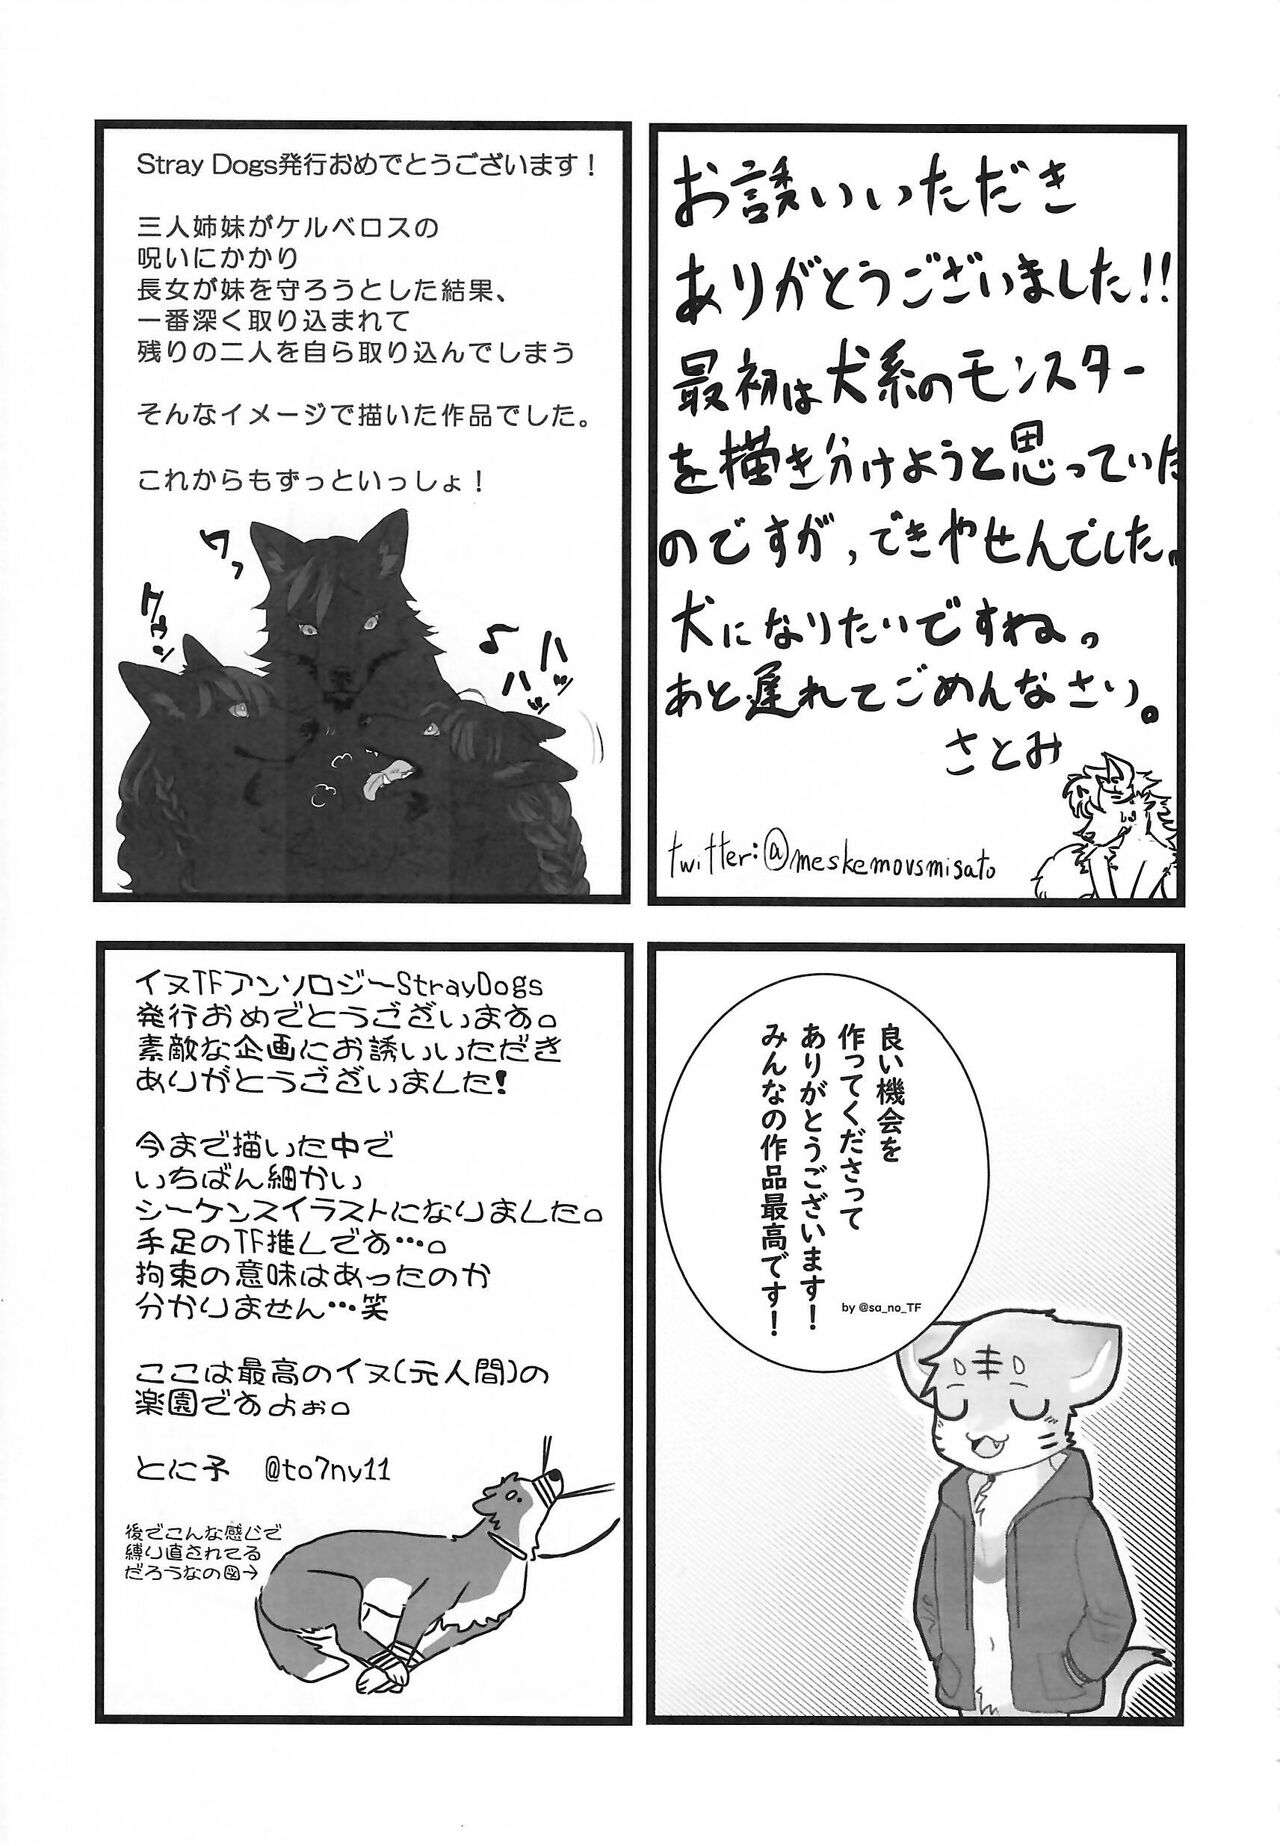 Stray Dogs発行おめでとうございます！
三人姉妹がケルベロスの
呪いにかかり
長女が妹を守ろうとした結果、
一番深く取り込まれて
残りの二人を自ら取り込んでしまう
そんなイメージで描いた作品でした。
これからもずっといっしょ！
ワっ
クゥン
♪
ハッ
ハッ
お誘いいただき
ありがとうございました!!
最初は犬系のモンスター
を描き分けようと思っていた
のですが，できやせんでした。
犬になりたいですねっ
あと遅れてごめんなさい。
さとみ
twitter:@meskemovsmisato
イヌTFアンソロジーStrayDogs
発行おめでとうございます。
素敵な企画にお誘いいただき
ありがとうございました！
今まで描いた中で
いちばん細かい
シーケンスイラストになりました。
手足のTF推しです…。
拘束の意味はあったのか
分かりません…笑
ここは最高のイヌ(元人間)の
楽園ですよぉ。
とに子　@to7ny11
後でこんな感じで
縛り直されてる
だろうなの図→
良い機会を
作ってくださって
ありがとうございます！
みんなの作品最高です！
by @sa_no_TF